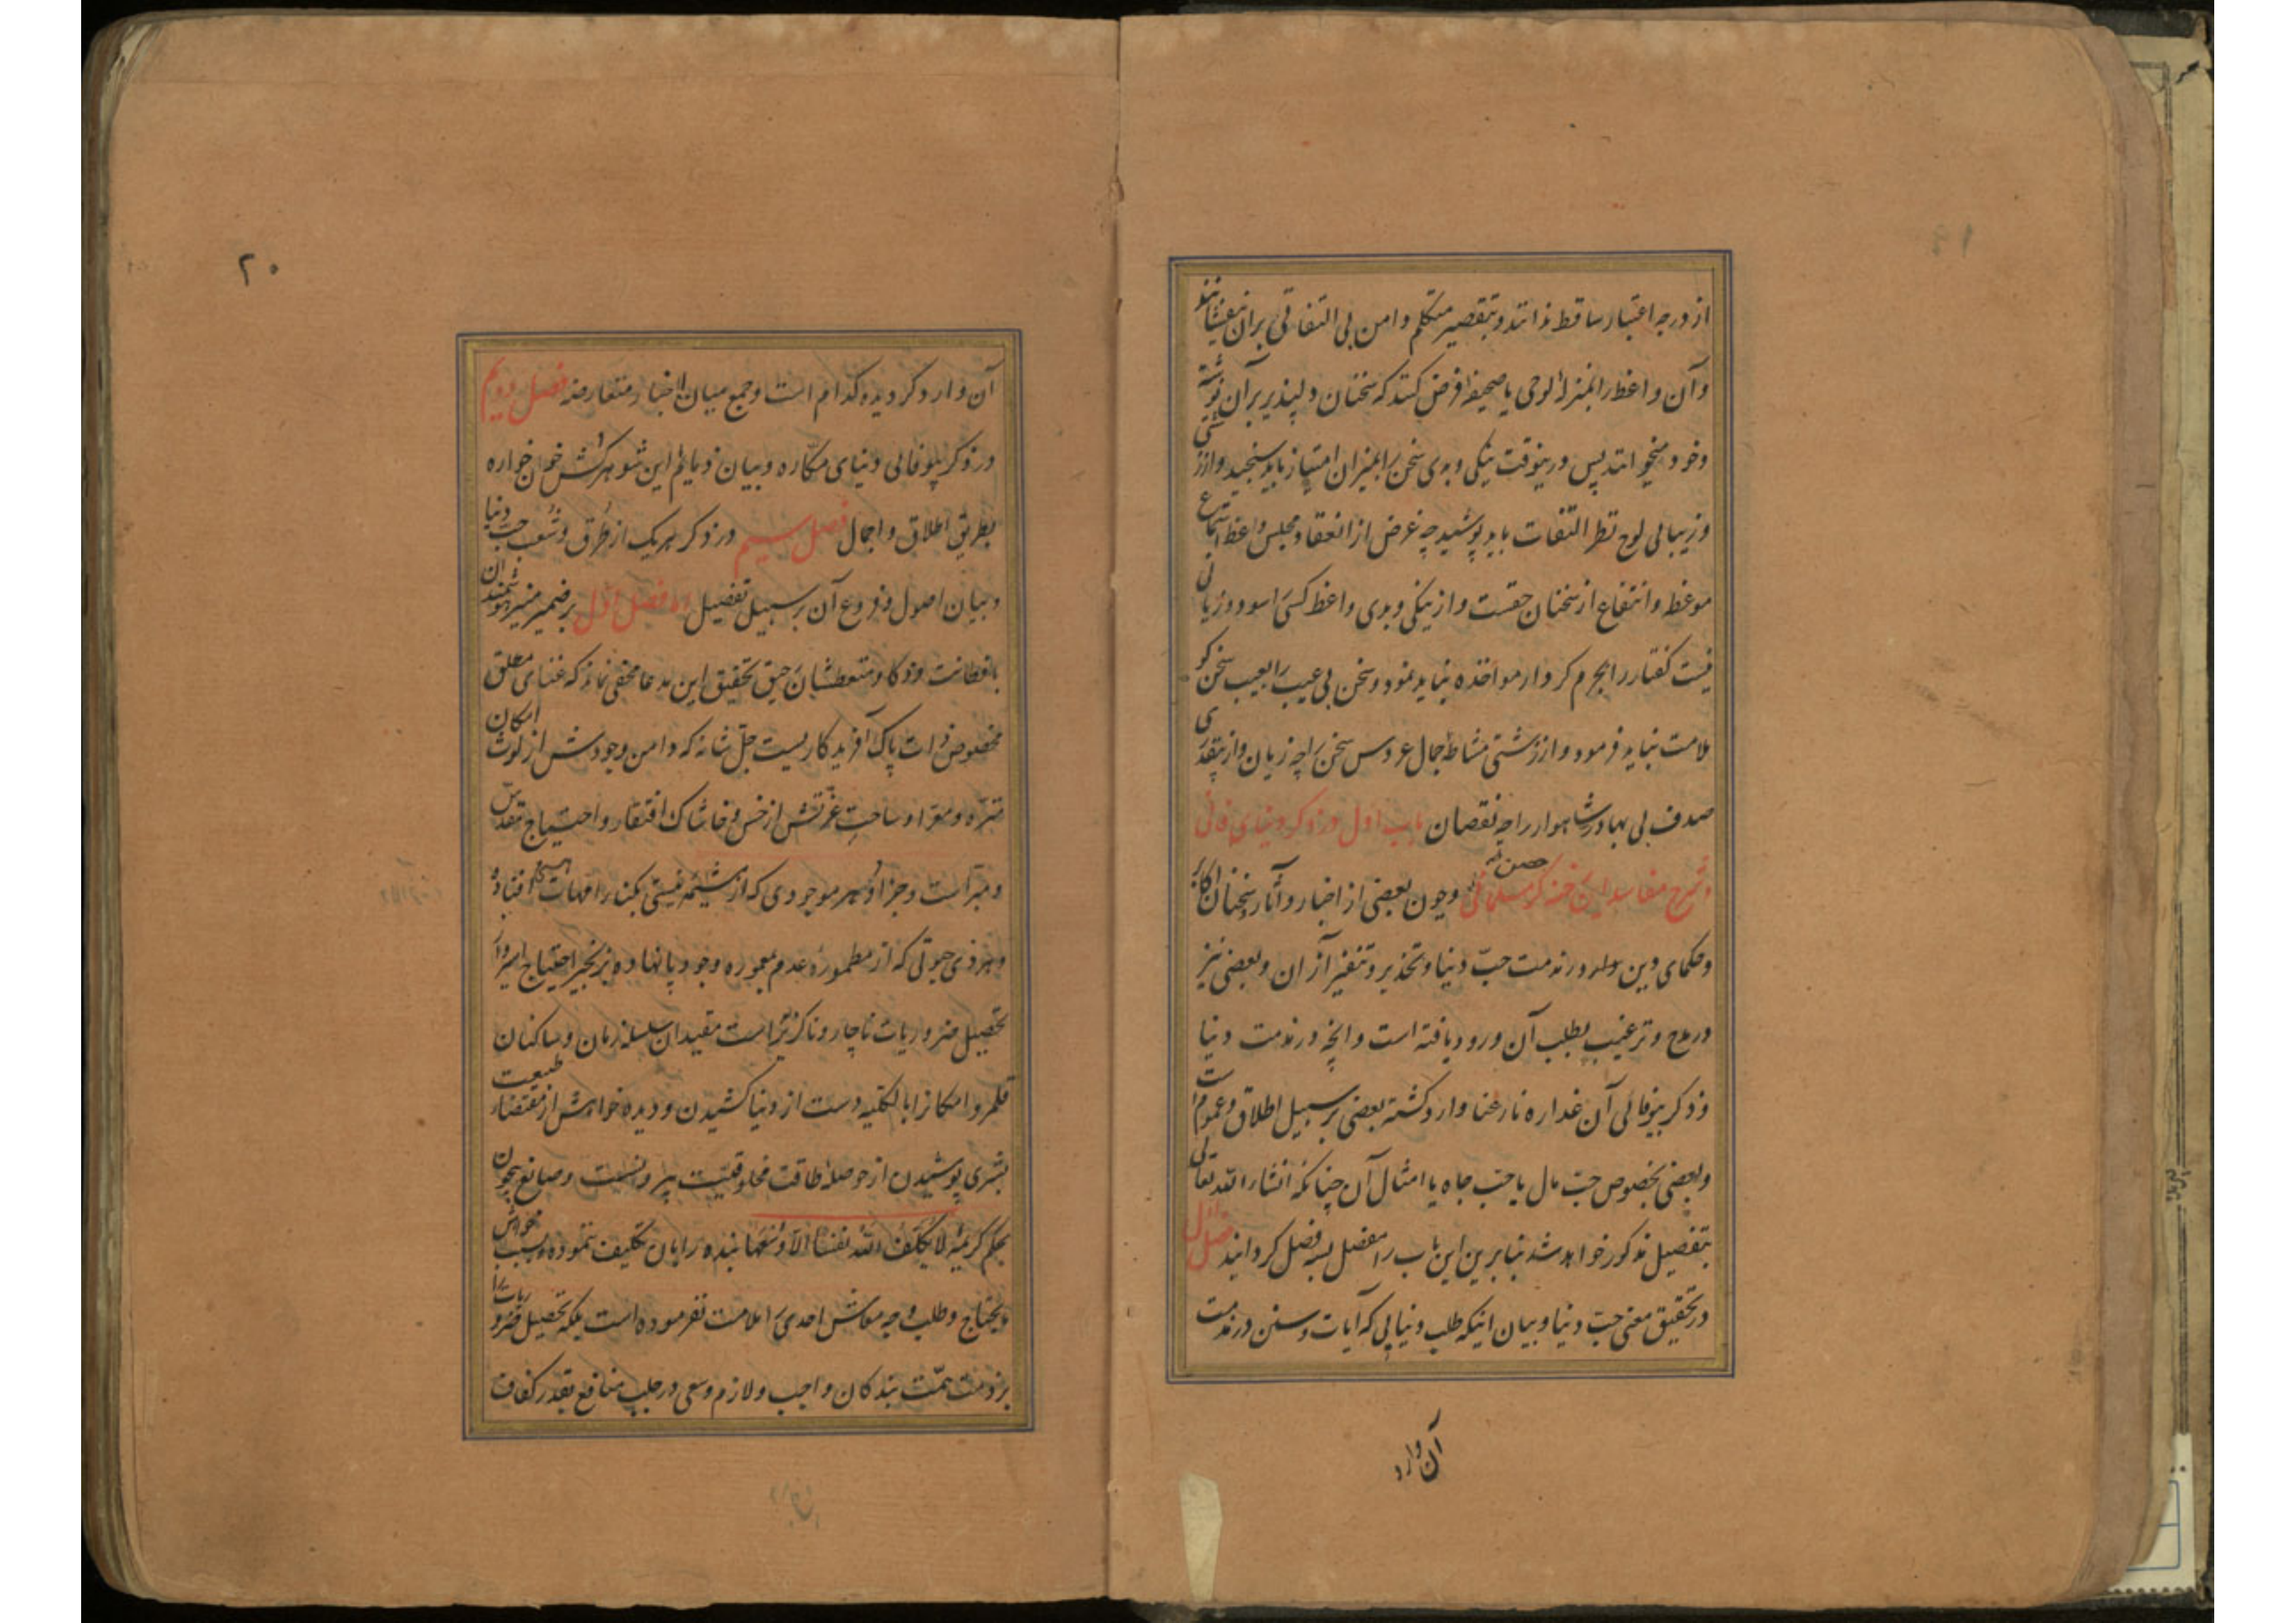 از درجه اعتبار ساقط ندانند و بتقصیر متکلم دامن بی التفاتی بران نیفشانند
و آن واعظ را بمنزلهٔ لوحی یا صحیفه فرض کنند که سخنان دلپذیر بر آن نوشته
و خود میخوانند پس درینوقت نیکی و بدی سخن را بمیزان امتیاز باید سنجید و از زشتی
و زیبائی لوح نظر التفات باید پوشید چه غرض از انعقاد مجلس وعظ استماع
موعظه و انتفاع از سخنان حقست و از نیکی و بدی واعظ کسی را سود و زیانی
نیست گفتار را بجرم کردار مواخذه نباید نمود و سخن بی عیب را بعیب سخن کو
ملامت نباید فرمود و از زشتی مشاطه جمال عروس سخن را چه زیان و از بیقدری
صدف بی بها در شاهوار را چه نقصان باب اول در ذکر دنیای فانی
و شرح مفاسد این فتنه کر مسلمانی و چون بعضی از اخبار و آثار و سخنان اکابر
و حکمای دین و در مذمت حبّ دنیا و تحذیر و تنفیر از ان و بعضی نیز
در مدح و ترغیب بطلب آن ورود یافته است و انچه در مذمت دنیا
و ذکر بیوفائی آن غداره نارعنا وارد کشته بعضی بر سبیل اطلاق و عموم است
و بعضی بخصوص حبّ مال یا حبّ جاه یا امثال آن چنانکه انشاء الله تعالی
بتفصیل مذکور خواهد شد بنا برین این باب را مفصل بسه فصل کردانید فصل اول
در تحقیق معنی حبّ دنیا و بیان اینکه طلب دنیایی که آیات و سنن در مذمت
آن وارد
۲۰
آن وارد کردیده کدام است و جمع میان اخبار متعارضه فصل دویم
در ذکر بیوفائی دنیای مکّاره و بیان ذمایم این شوهرکش خون خواره
بطریق اطلاق و اجمال فصل سیم در ذکر هر یک از طُرق و شُعب حبّ دنیا
و بیان اصول و فروع آن بر سبیل تفصیل اما فصل اول بر ضمیر منیر هوشمندان
بافطانت و ذکا و متعطشان رحیق تحقیق این مدعا مخفی نماند که غنای مطلق
مخصوص ذات پاک آفریدکاریست جلّ شانه که دامن وجودش از لوث امکان
منزّه و معرّا و ساحت عزّتش از خس و خاشاک افتقار و احتیاج مقدّس
و مبرّاست و جز او هر موجودی که از مشیمهٔ نیستی بکنار امهات افتاده
و هر ذی حیوتی که از مطمورهٔ عدم بمعموره وجود پا نهاده بزنجیر احتیاج اسیر و از
تحصیل ضروریات ناچار و ناکزیر است مقیدان سلسله زمان و ساکنان
قلمرو امکان را بالکلیه دست از دنیا کشیدن و دیده خواهش از مقتضای طبیعت
بشری پوشیدن از حوصلهٔ طاقت مخلوقیّت بیرونست و صانع بیچون
بحکم کریمهٔ لا یُکلّفُ اللهُ نفساً الاّ وُسعَها بنده را بان تکلیف ننموده و بسبب خواهش
مایحتاج و طلب وجه معاش احدی را ملامت نفرموده است بلکه تحصیل ضروریات را
بر ذمت همّت بندکان واجب و لازم و سعی در جلب منافع بقدر کفاف